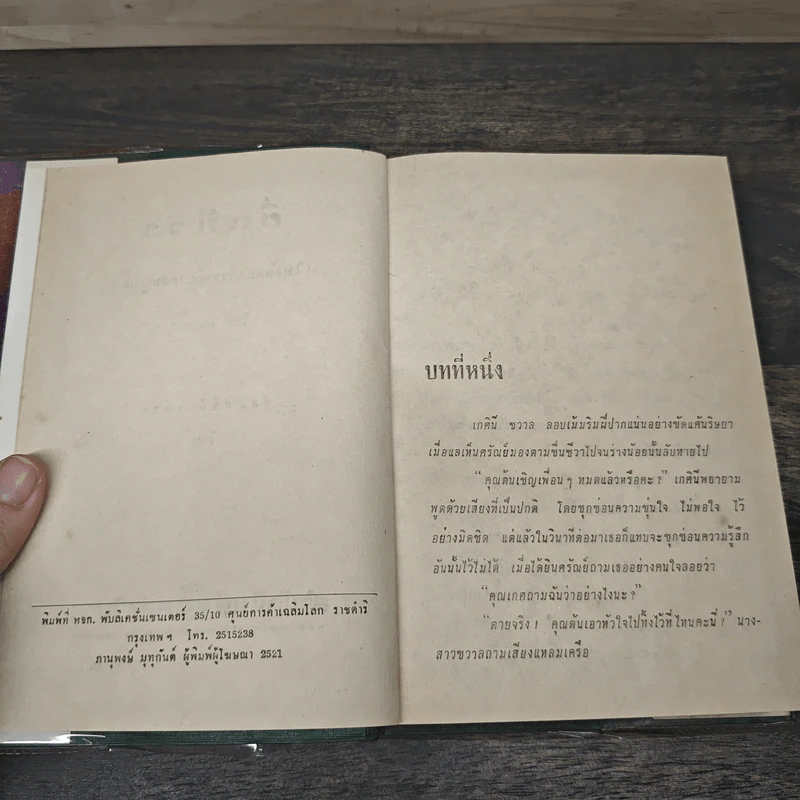 พิมพ์ที่ หจก. พับลิเคชั่นเซนเตอร์ 35/10 ศูนย์การค้าเฉลิมโลก ราชดำริ
กรุงเทพฯ โทร. 2515238
ภานุพงษ์ มุทุกันต์ ผู้พิมพ์ผู้โฆษณา 2521
บทที่หนึ่ง
เกศินี ชวาล ลอบเม้มริมฝีปากแน่นอย่างขัดแค้นริษยา
เมื่อแลเห็นศรัณย์มองตามชื่นชีวาไปจนร่างน้อยนั้นลับหายไป
"คุณต้นเชิญเพื่อนๆ หมดแล้วหรือคะ?" เกศินีพยายาม
พูดด้วยเสียงที่เป็นปกติ โดยซุกซ่อนความขุ่นใจ ไม่พอใจ ไว้
อย่างมิดชิด แต่แล้วในวินาทีต่อมาเธอก็แทบจะซุกซ่อนความรู้สึก
อันนั้นไว้ไม่ได้ เมื่อได้ยินศรัณย์ถามเธออย่างคนใจลอยว่า
"คุณเกศถามฉันว่าอย่างไงนะ?"
"ตายจริง! คุณต้นเอาหัวใจไปทิ้งไว้ที่ไหนคะนี่?" นาง-
สาวชวาลถามเสียงแหลมเครือ